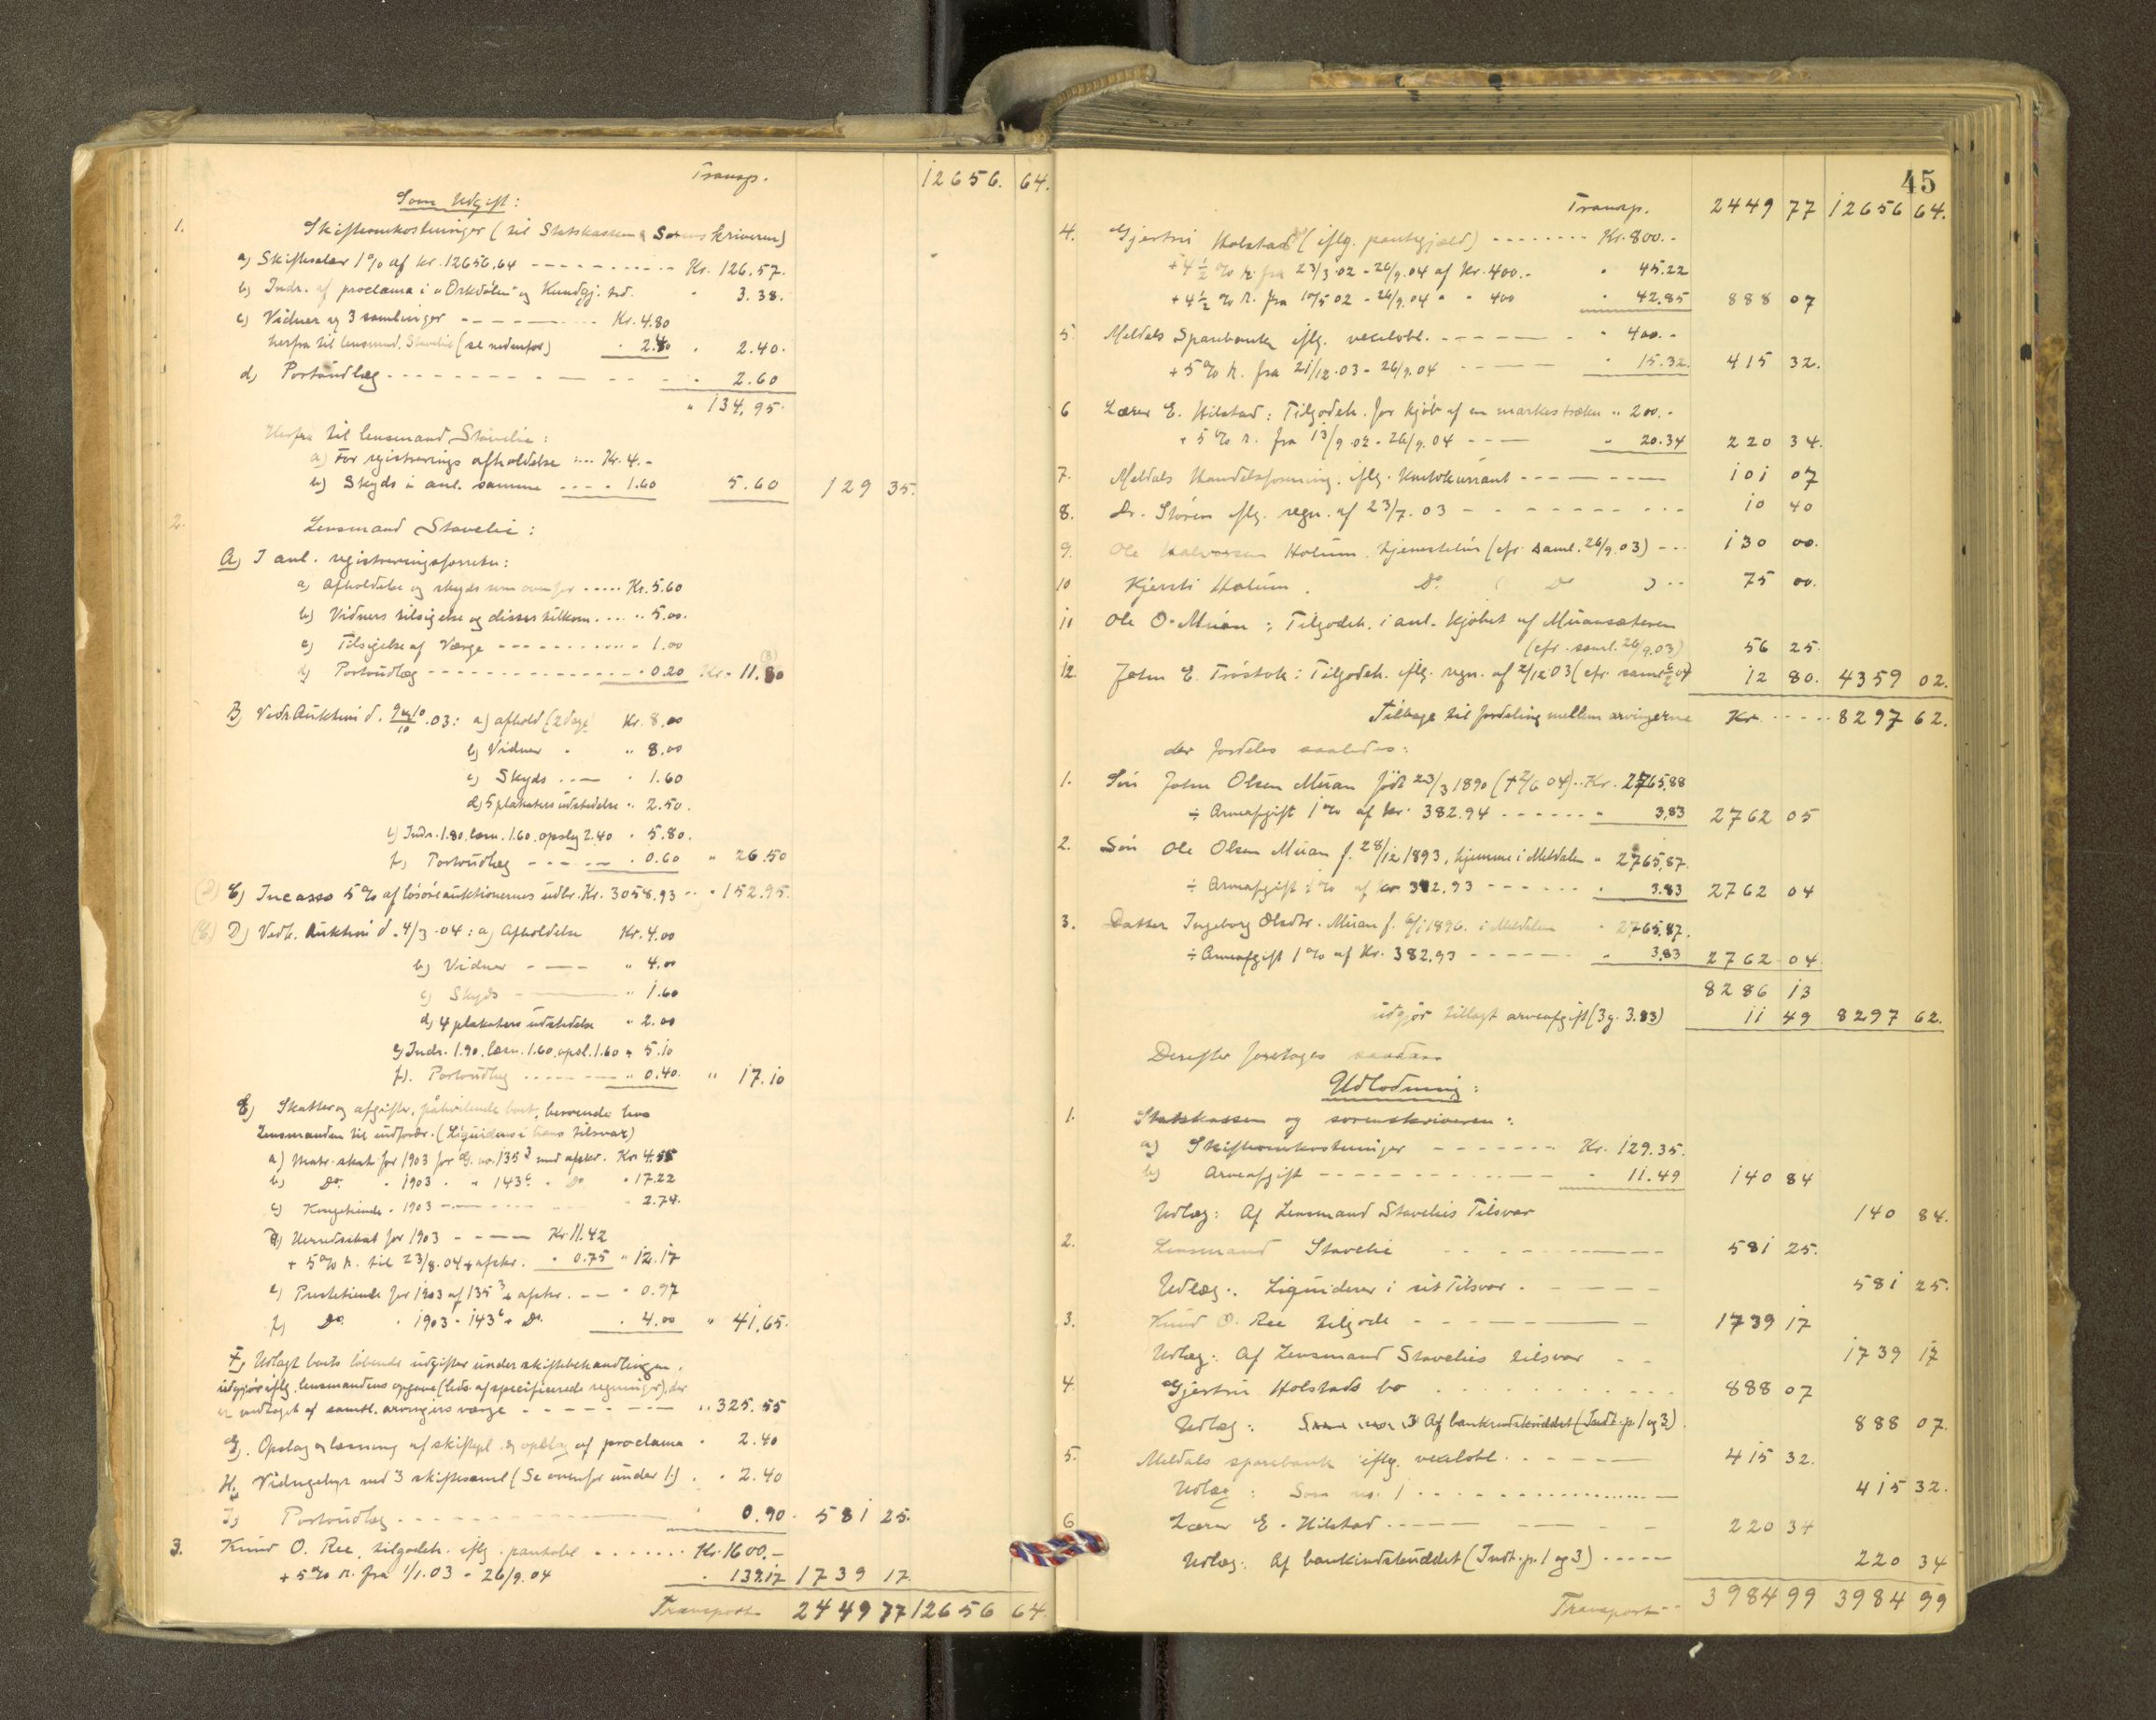 Transp. 12656. 64.
Som Udgift:
1. Skifteomkostninger (til Statskassen & Sorenskriveren)
a) Skiftesalær 1% af kr. 12656.64 - - - - Kr. 126.57.
b) Indr. af proclama i "Orkdølen" og Kundgj. tid. " 3.38.
c) Vidner og 3 samlinger - - - - Kr. 4.80
herfra til lensmand Stavelie (se nedenfor) " 2.40 " 2.40.
d) Portoudlæg - - - - " 2.60
" 134.95.
Herfra til lensmand Stavelie:
a) For registrerings afholdelse .... Kr. 4.-
b) Skyds i anl. samme .... " 1.60 5.60 129 35.
2. Lensmand Stavelie:
A) I anl. registreringsforretn:
a) Afholdelse og skyds som ovenfor ..... Kr. 5.60
b) Vidners tilsigelse og disses tilkom. ... " 5.00.
c) Tilsigelse af Værge - - - - " 1.00
d) Portoudlæg - - - - " 0.20 Kr. 11.80
B) Vedr. Auktion d. 9 og 10/10.03: a) afhold (2 dage) Kr. 8.00
b) Vidner " " 8.00
c) Skyds - - " 1.60
d) 5 plakaters udstedelse " 2.50.
e) Indr. 1.80, læsn. 1.60, opslag 2.40 " 5.80.
f) Portoudlæg - - - " 0.60 " 26.50
C) Incasso 5% af løsøreauktionernes udbr. Kr. 3058.93 - " 152.95.
D) Vedr. Auktion d. 4/3.04: a) Afholdelse Kr. 4.00
b) Vidner - - " 4.00
c) Skyds - - " 1.60
d) 4 plakaters udstedelse " 2.00
e) Indr. 1.90, læsn. 1.60, opsl. 1.60 " 5.10
f) Portoudlæg - - - " 0.40. " 17.10
E) Skatter og afgifter, påhvilende boet, beroende hos
Lensmanden til indfordr. (Liquideres i hans tilsvar)
a) Matr. skat for 1903 for G. no. 135³ med afskr. Kr. 4.55
b) Do. " 1903 " " 143⁶ " Do " 17.22
c) Kongetiende " 1903 - - - " 2.74.
d) Herredsskat for 1903 - - - Kr. 11.42
+ 5% r. til 23/8.04 + afskr. " 0.75 " 12.17
e) Prestetiende for 1903 af 135³ + afskr. - - " 0.97
f) Do. " 1903 " 143⁶ + Do. " 4.00 " 41.65.
F) Udlagt boets løbende udgifter under skiftebehandlingen,
udgjør iflg. lensmandens opgave (leds. af specificerede regninger), der
er vedtaget af samtl. arvingers værge - - - - " 325.55
G. Opslag og læsning af skiftepl. og opslag af proclama " 2.40
H. Vidnegebyr ved 3 skiftesaml. (Se ovenfor under 1.) . " 2.40
I) Portoudlæg - - - - " 0.90. 581 25.
3. Knud O. Ree, tilgodeh. iflg. pantobl. ....... Kr. 1600.-
+ 5% r. fra 1/1.03 - 26/9.04 " 139.17 1739 17.
Transport 2449 77 12656 64.
45
Transp. 2449 77 12656 64.
4. Gjertru Holstad (iflg. pantegjæld) ........ Kr. 800.-
+ 4½% r. fra 23/3.02 - 26/9.04 af Kr. 400.- " 45.22
+ 4½% r. fra 10/5 02 - 26/9.04 " " 400 " 42.85 888 07
5. Meldals Sparebank iflg. vexelobl. - - - - " 400.-
+ 5% r. fra 21/12.03 - 26/9.04 - - - " 15.32. 415 32.
6 Lærer E. Hilstad: Tilgodeh. for kjøb af en markestrækn " 200.-
+ 5% r. fra 13/9.02 - 26/9.04 - - - " 20.34 220 34.
7. Meldals Handelsforening, iflg. Kontokurrant - - - - 101 07
8. Dr. Støren iflg. regn. af 23/7.03 - - - - 10 40
9. Ole Halvorsen Holum, tjenesteløn (cfr. saml. 26/9.03) - - - 130 00.
10 Kjersti Holum. Do. ( Do ) - - 75 00.
11 Ole O. Muan: Tilgodeh. i anl. kjøbet af Muansæteren
(cfr. saml. 26/9.03) 56 25.
12. John E. Trøstøk: Tilgodeh. iflg. regn. af 2/12.03 (cfr. saml. 6/2 04) 12 80. 4359 02.
Tilbage til fordeling mellem arvingerne Kr. ..... 8297 62.
der fordeles saaledes:
1. Søn John Olsen Muan født 23/3 1890 († 2/6 04) .. Kr. 2765.88
÷ Arveafgift 1% af kr. 382.94 - - - - " 3.83 2762 05
2. Søn Ole Olsen Muan f. 28/12 1893, hjemme i Meldalen " 2765.87.
÷ Arveafgift 1% af kr 382.93 - - - - " 3.83 2762 04
3. Datter Ingeborg Olsdtr. Muan f. 6/1 1896. i Meldalen " 2765.87.
÷ Arveafgift 1% af Kr. 382.93 - - - - " 3.83 2762 04
8286 13
udgjør tillagt arveafgift (3 g. 3.83) 11 49 8297 62.
Derefter foretages saadan
Udlodning:
1. Statskassen og sorenskriveren:
a) Skifteomkostninger - - - - Kr. 129.35.
b) Arveafgift - - - - " 11.49 140 84
Udlæg: Af Lensmand Stavelies Tilsvar 140 84.
2. Lensmand Stavelie - - - - 581 25.
Udlæg: Liquiderer i sit Tilsvar - - - - 581 25.
3. Knud O. Ree tilgode - - - - 1739 17
Udlæg: Af Lensmand Stavelies tilsvar - - 1739 17
4. Gjertru Holstads bo . . . . 888 07
Udlæg: Som no. 3 Af bankindskuddet (Indt. p. 1 og 3). 888 07.
5. Meldals sparebank iflg. vexelobl. - - - - 415 32.
Udlæg: Som no. 1 - - - - 415 32.
6 Lærer E. Hilstad - - - - 220 34
Udlæg: Af bankindskuddet (Indt. p. 1 og 3) ----- 220 34
Transport - - 3984 99 3984 99